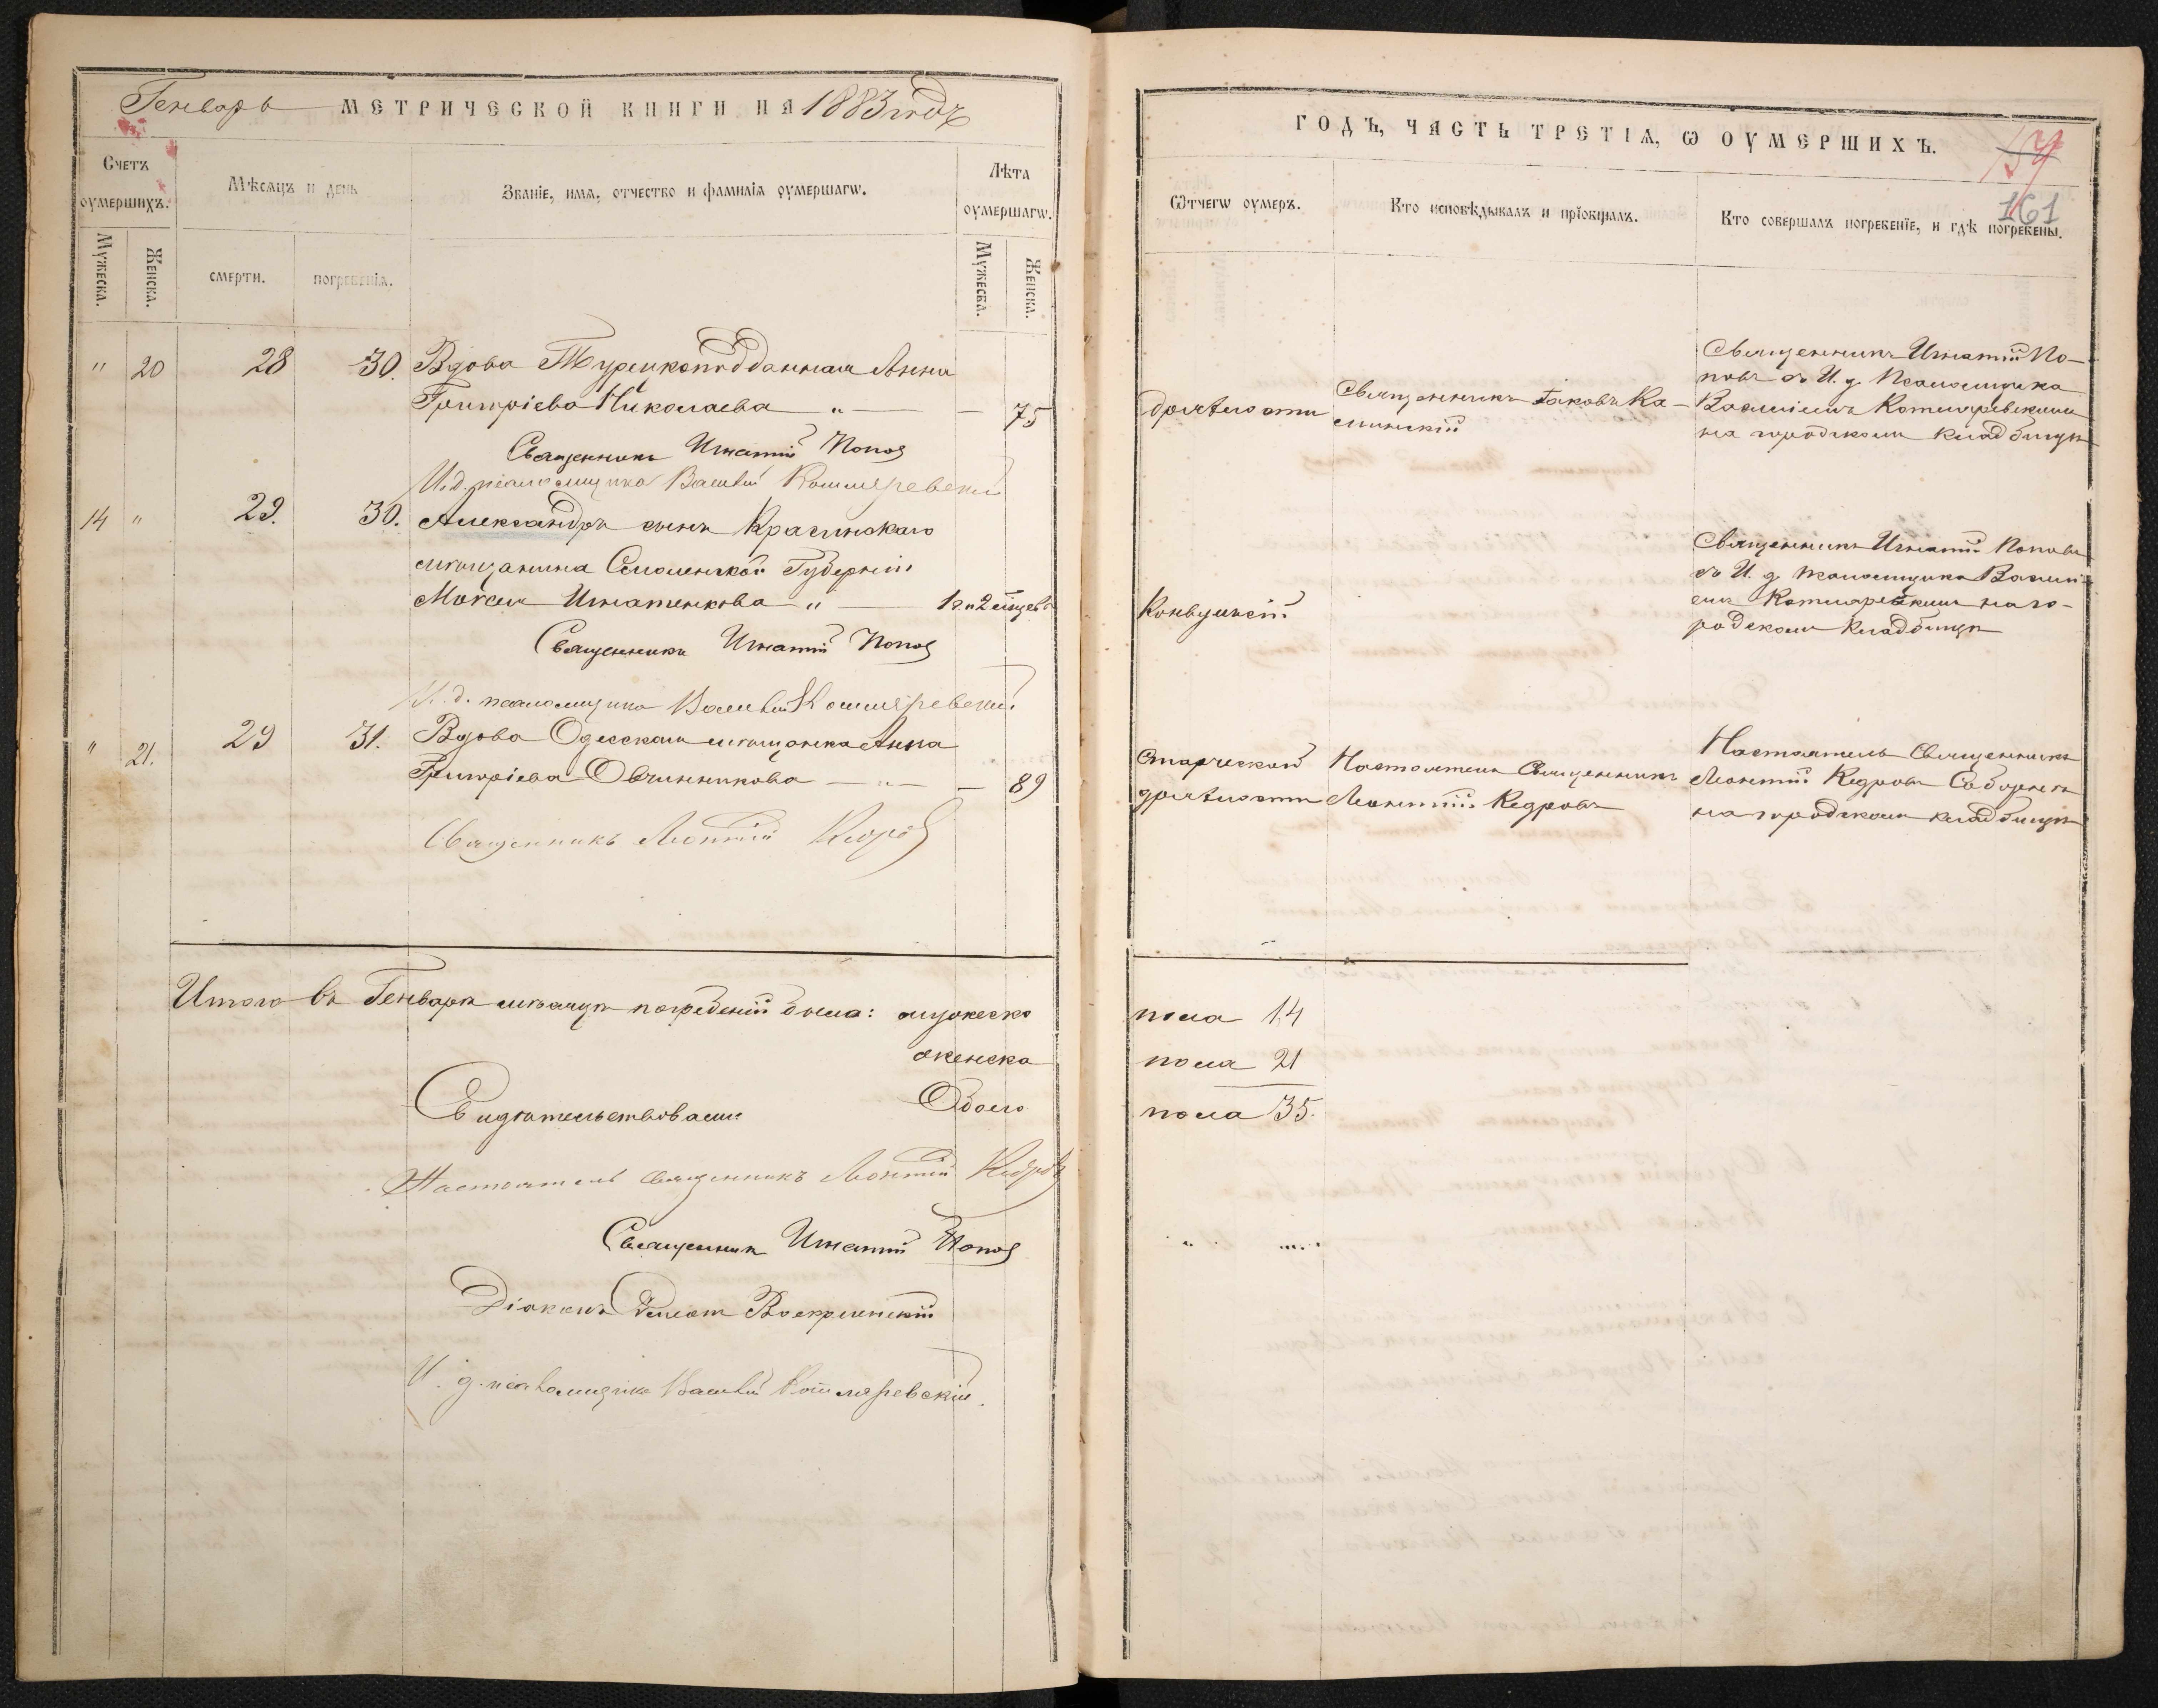 Генварь МЕТРИЧЕСКОЙ КНИГИ НА 1883 годъ
Счетъ оумершихъ.
Мѣсяцъ и день
Званіе, имя, отчество и фамилія оумершагѡ.
Лѣта оумершагѡ.
Мужеска.
Женска.
смерти.
погребенія.
Мужеска.
Женска.
" 20 28 30. Вдова Турецкоподданная Анна
Григоріева Николаева — " — 75
Священникъ Игнатій Попов
И.д. псаломщика Василій Котляревскій
14 " 29. 30. Александръ сынъ Красинскаго
мѣщанина Смоленской Губерніи
Моисея Игнатенкова " — 1 г. 2 мѣсяцевъ
Священникъ Игнатій Попов
И.д. псаломщика Василій Котляревскій
" 21. 29 31. Вдова Одесская мѣщанка Анна
Григоріева Овчинникова — " — 89
Священникъ Леонтій Кедров
Итого въ Генварѣ мѣсяцѣ погребеній было: мужеска
женска
Свидѣтельствовали: Обоего
Настоятель Священникъ Леонтій Кедровъ
Священникъ Игнатій Попов
Діаконъ Воскресенскій
И. д. псаломщика Василій Котляревскій.
ГОДЪ, ЧАСТЬ ТРЕТІЯ, Ѡ ОУМЕРШИХЪ.
159
161
Ѿчегѡ оумеръ.
Кто исповѣдывалъ и пріобщалъ.
Кто совершалъ погребеніе, и гдѣ погребены.
Дряхлости
Священникъ Іаковъ Ка-
минскій
Священникъ Игнатій По-
повъ съ И. д. Псаломщика
Василіемъ Котляревскимъ
на городскомъ кладбищѣ
Конвульсій
Священникъ Игнатій Поповъ
съ И. д. Псаломщика Васили-
емъ Котляревскимъ на го-
родскомъ кладбищѣ
Старческой
дряхлости
Настоятель Священникъ
Леонтій Кедровъ
Настоятель Священникъ
Леонтій Кедровъ Соборне
на городскомъ кладбищѣ
пола 14
пола 21
пола 35.